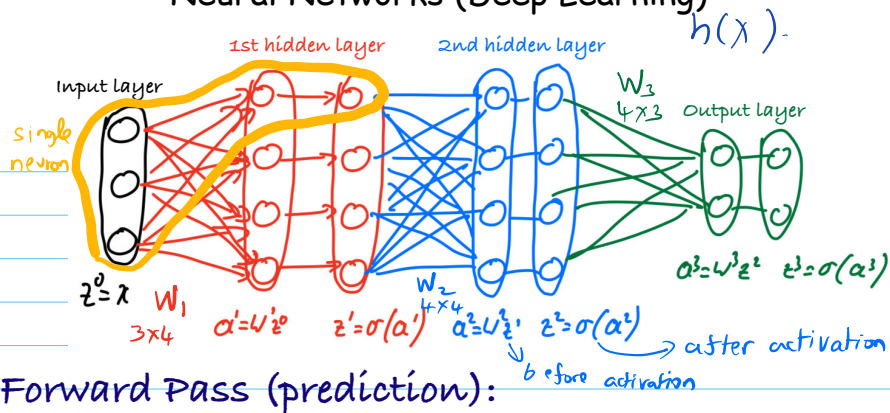 Neural Networks (Deep Learning)
h(x).
1st hidden layer
2nd hidden layer
Input layer
W₃
4×3
Output layer
single
neuron
z⁰=x
W₁
3×4
a¹=W¹z⁰
z¹=σ(a¹)
W₂
4×4
a²=W²z¹
z²=σ(a²)
a³=W³z²
z³=σ(a³)
before activation
after activation
Forward Pass (prediction):